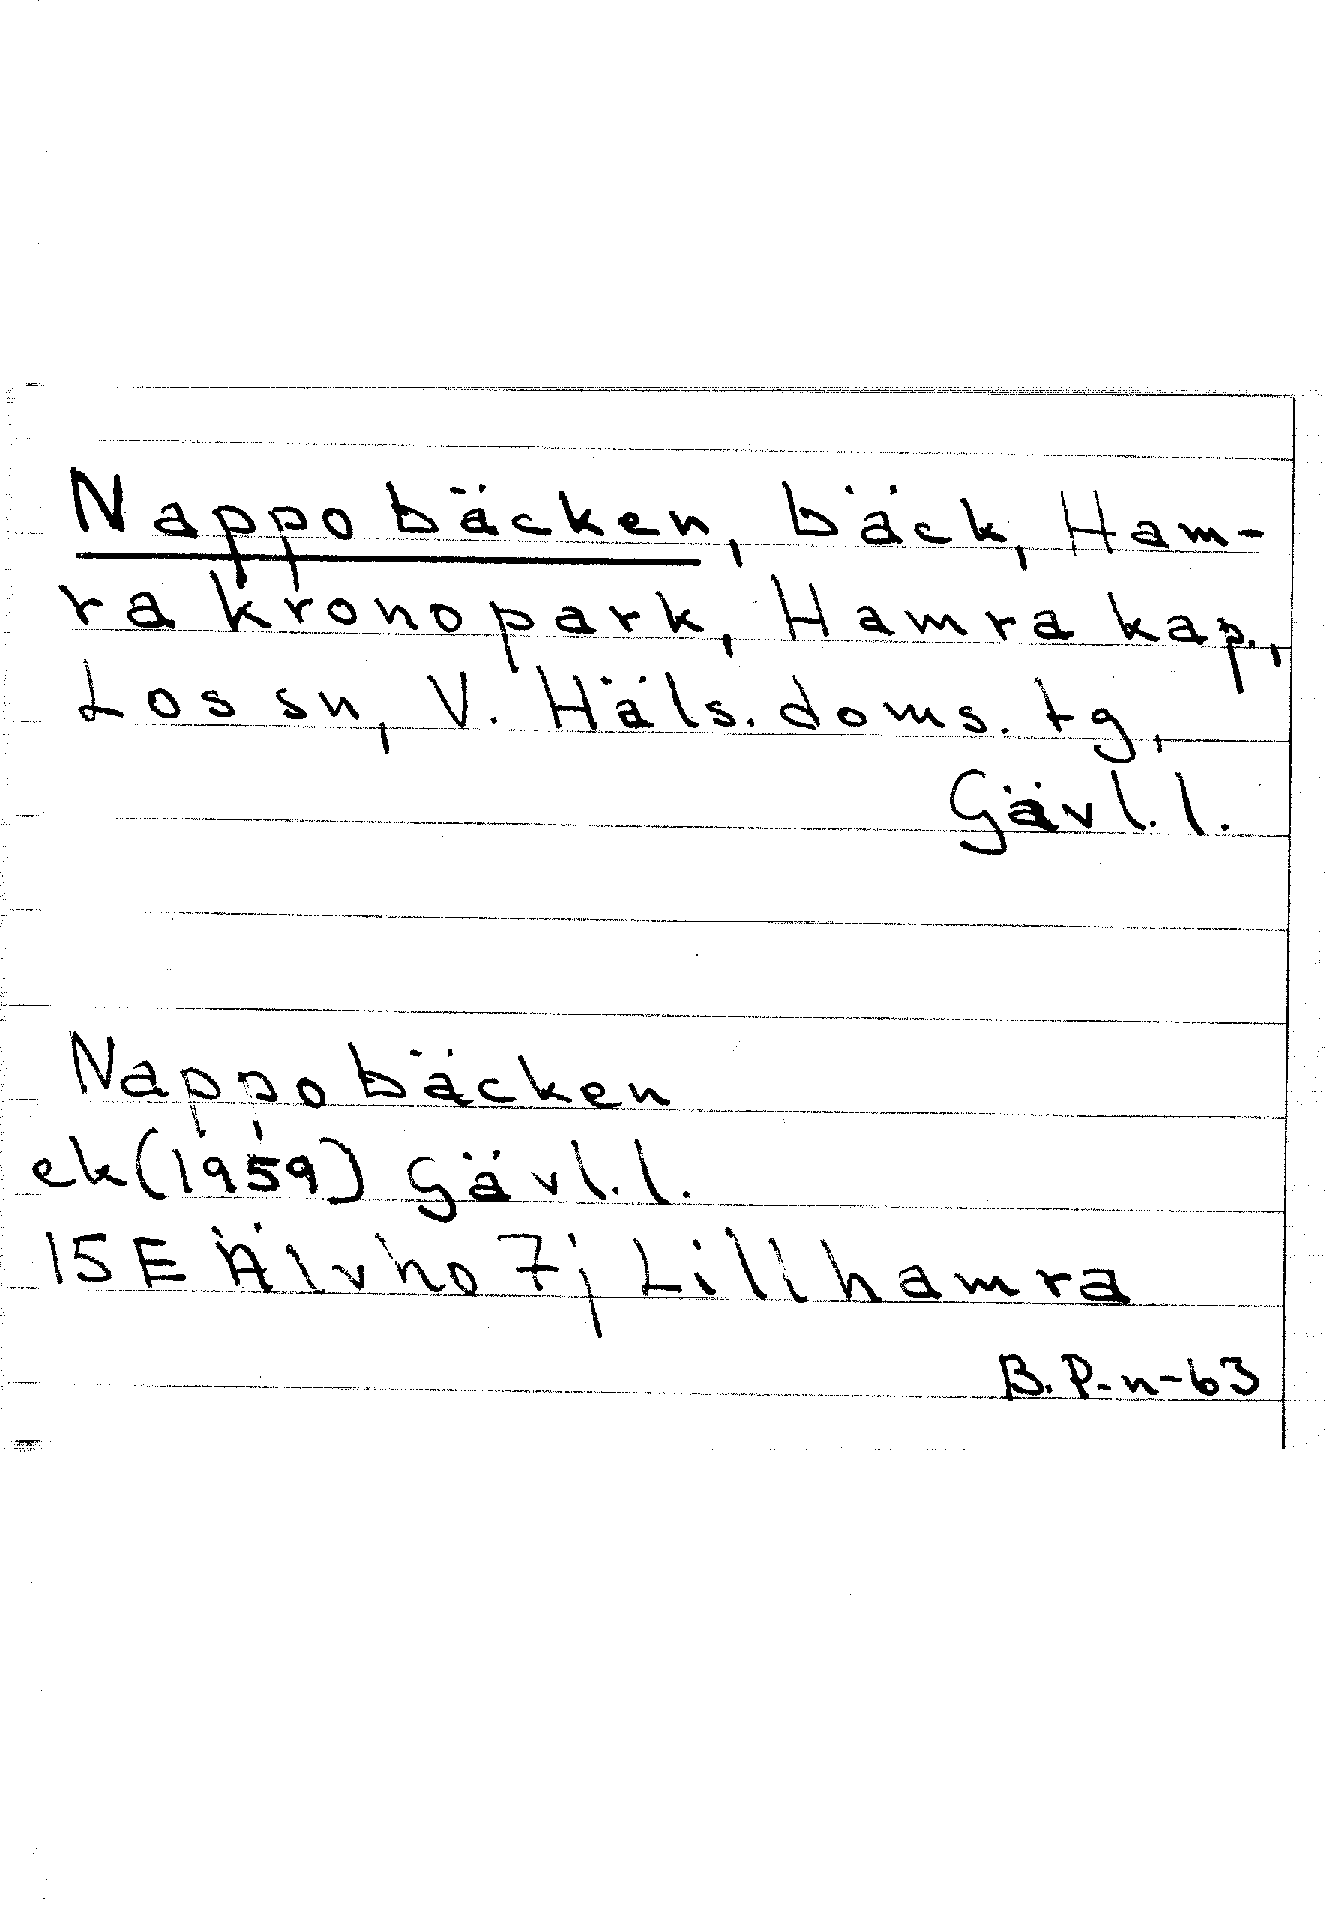 Nappobäcken, bäck, Ham-
ra kronopark, Hamra kap.,
Los sn, V. Häls. doms. tg,
Gävl. l.
Nappobäcken
ek (1959) Gävl. l.
15E Älvho 7j Lillhamra
B. P-n-63